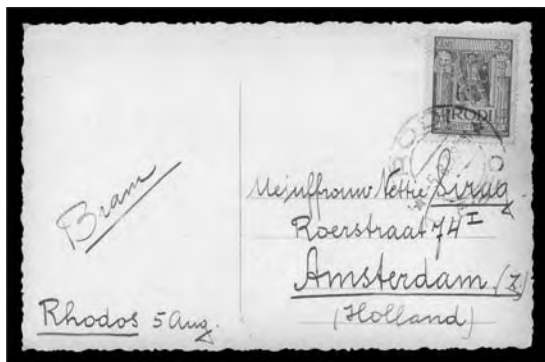 Bram
Rhodos 5 Aug.
CENT. 20
RODI
Mejuffrouw Nettie Sirag
Roerstraat 74 I
Amsterdam (Z.)
(Holland)